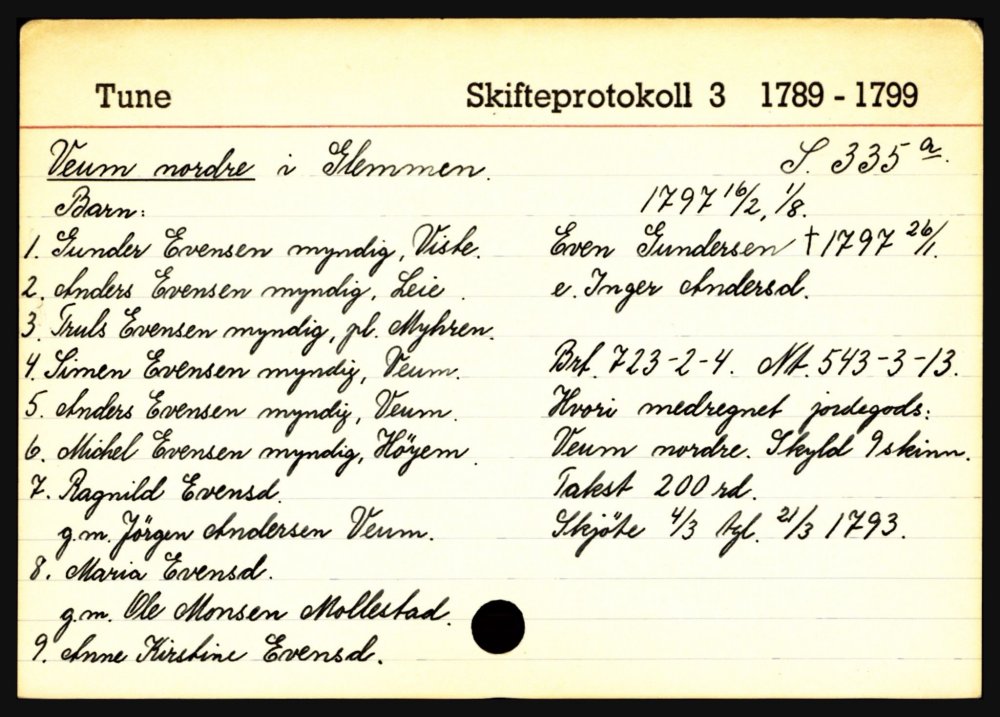 Tune Skifteprotokoll 3 1789 - 1799
Veum nordre i Glemmen. S. 335 a.
Barn: 1797 16/2, 1/8.
1. Gunder Evensen myndig, Viste. Even Gundersen † 1797 26/1.
2. Anders Evensen myndig, Leie. e. Inger Andersd.
3. Truls Evensen myndig, pl. Myhren.
4. Simen Evensen myndig, Veum. Brt. 723-2-4. Nt. 543-3-13.
5. Anders Evensen myndig, Veum. Hvori medregnet jordegods:
6. Michel Evensen myndig, Höyem. Veum nordre. Skyld 9 skinn.
7. Ragnild Evensd. Takst 200 rd.
g.m. Jörgen Andersen Veum. Skjöte 4/3 tgl. 21/3 1793.
8. Maria Evensd.
g.m. Ole Monsen Mollestad.
9. Anne Kirstine Evensd.